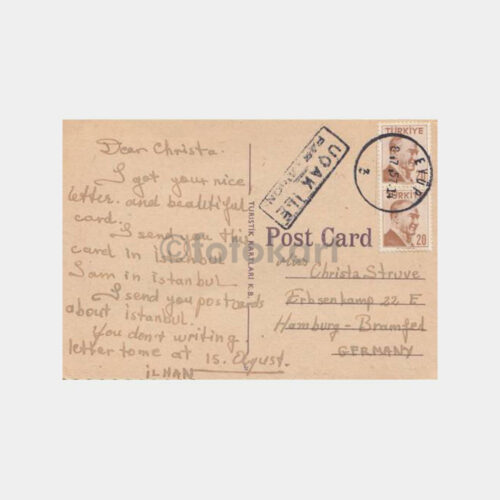 Dear Christa
I got your nice
letter. and beautiful
card.
I send you this
card in istanbul
I am in istanbul
I send you postcards
about istanbul.
You don't writing
letter to me at 15. Agust.
iLHAN
UÇAK İLE
PAR AVION
TURİSTİK KARTLARI K.B.
©fotokart
Post Card
TÜRKİYE
TÜRKİYE
20
EYÜP
Christa Struve
Erbsenkamp 22 E
Hamburg-Bramfed
GERMANY